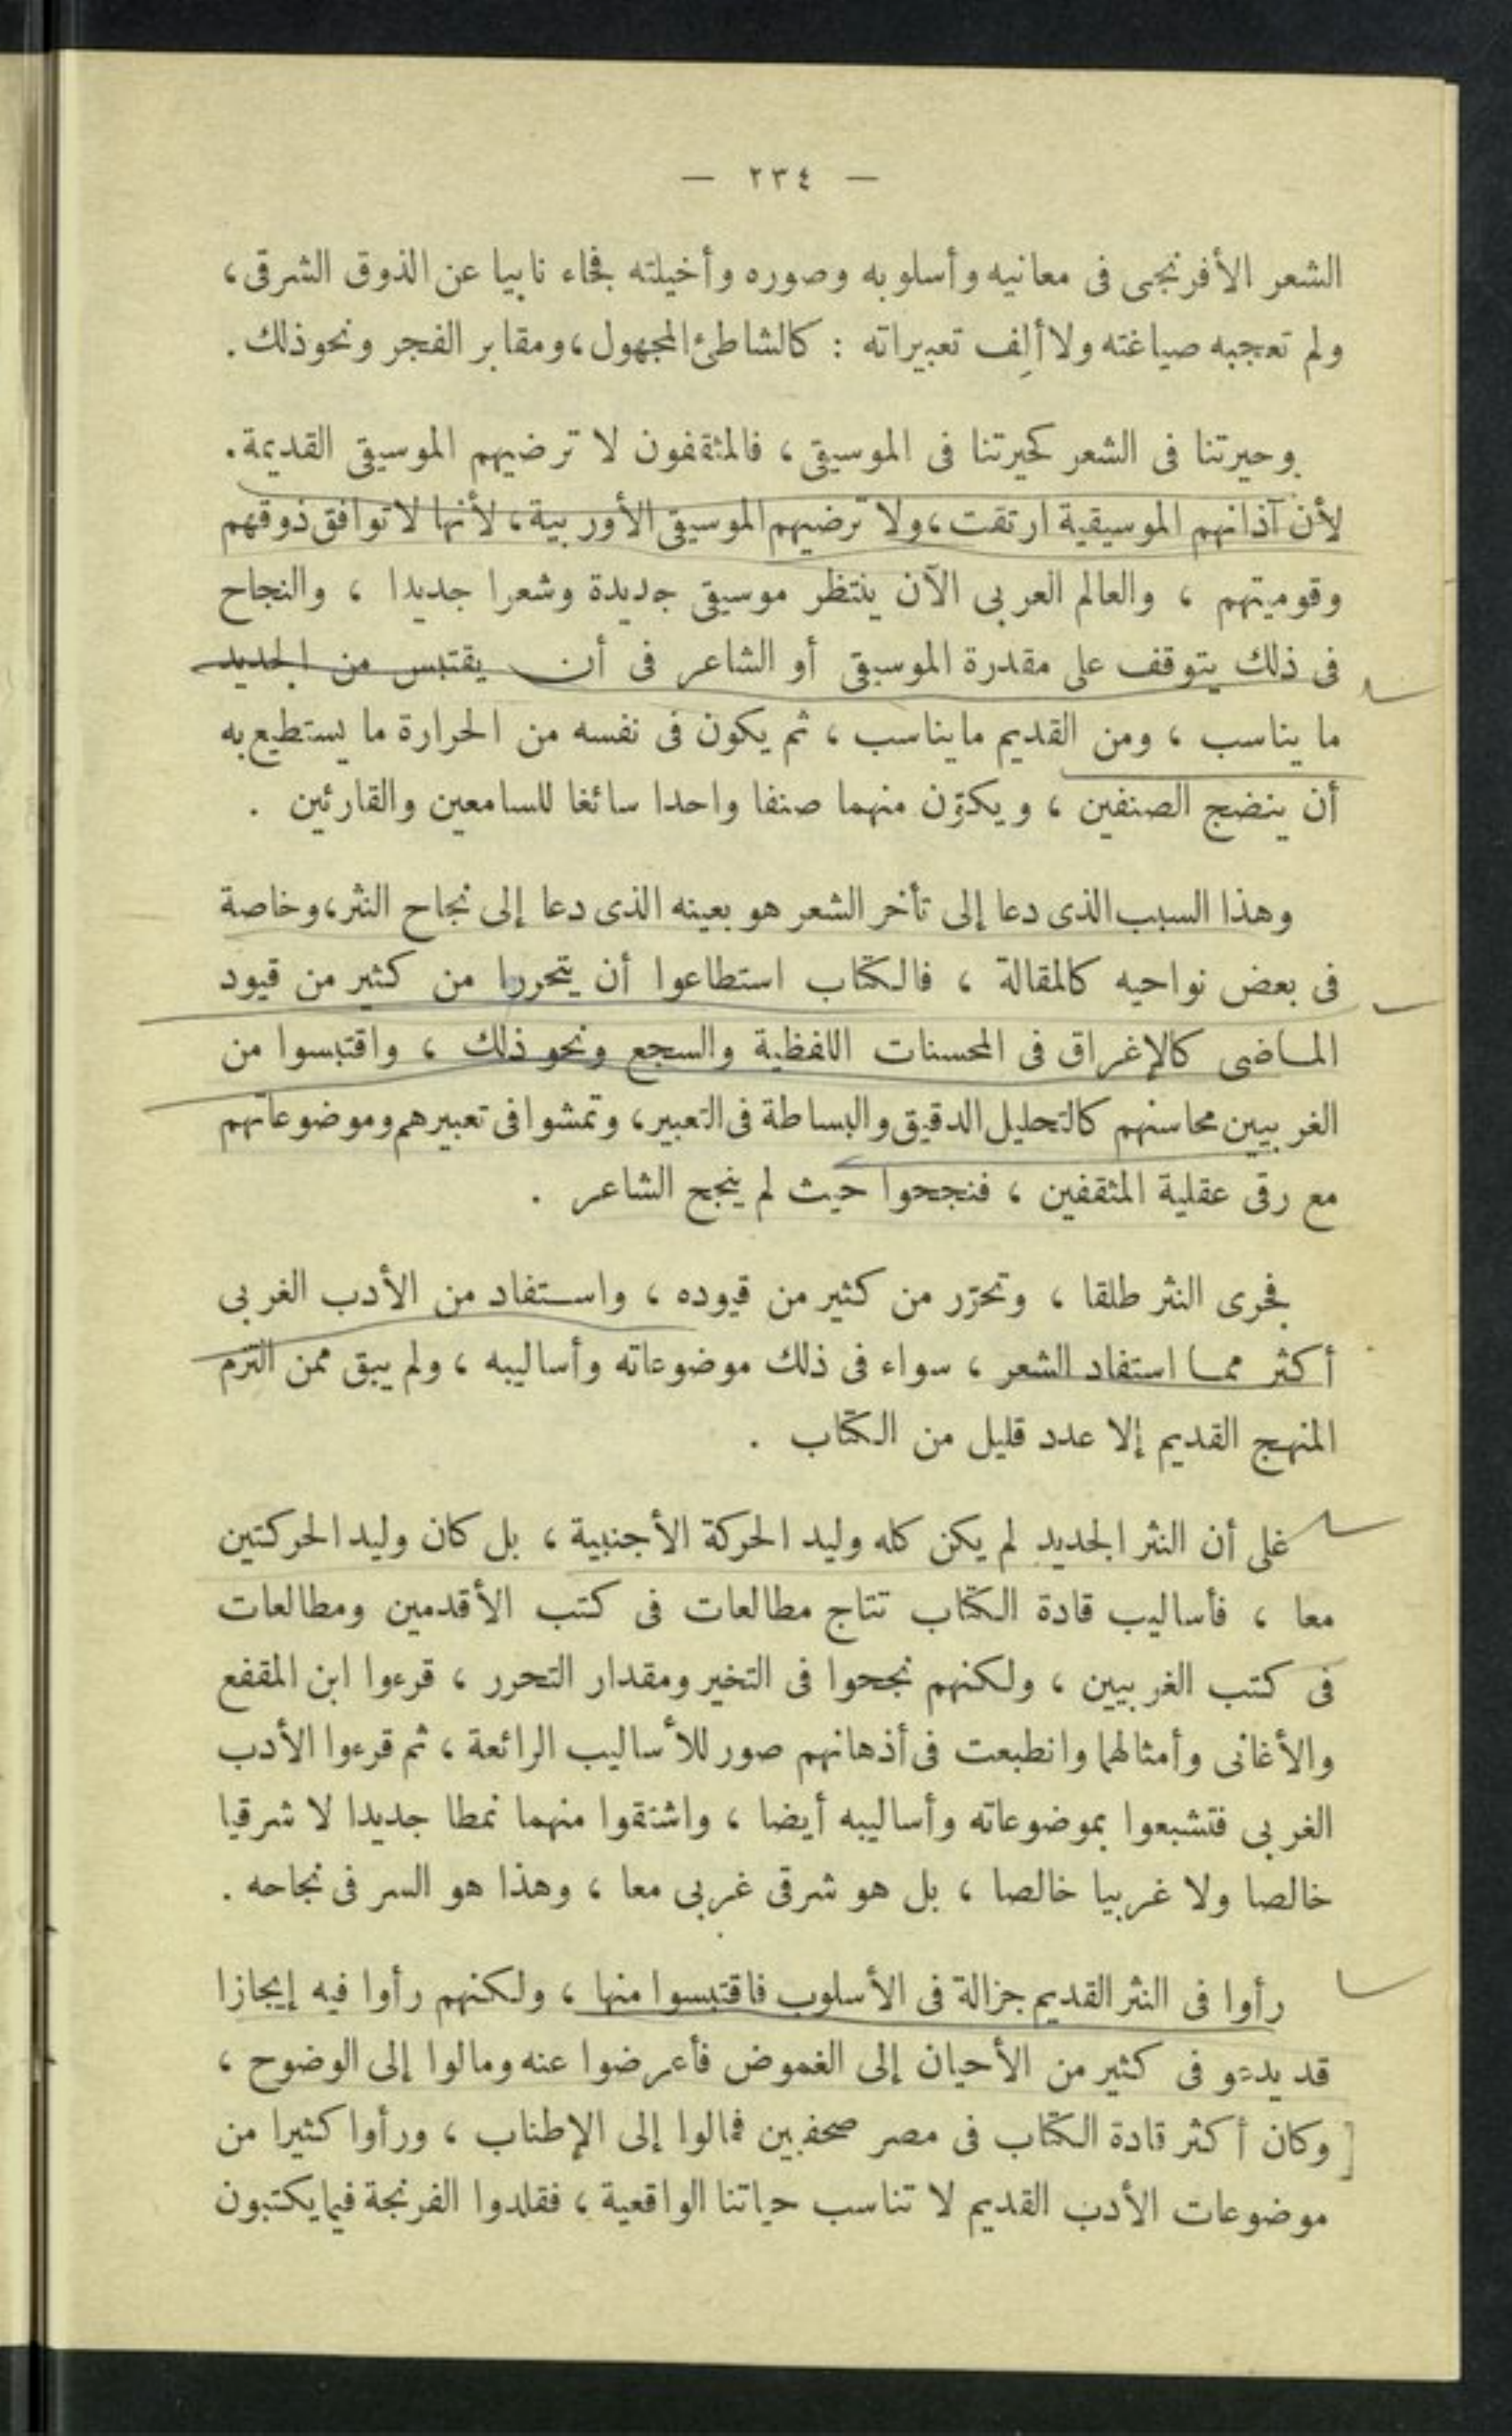 — ٢٣٤ —
الشعر الأفرنجى فى معانيه وأسلوبه وصوره وأخيلته فجاء نابيا عن الذوق الشرقى،
ولم تعجبه صياغته ولا ألِف تعبيراته : كالشاطئ المجهول، ومقابر الفجر ونحو ذلك .
وحيرتنا فى الشعر كحيرتنا فى الموسيقى ، فالمثقفون لا ترضيهم الموسيقى القديمة.
لأن آذانهم الموسيقية ارتقت، ولا ترضيهم الموسيقى الأوربية، لأنها لا توافق ذوقهم
وقوميتهم ، والعالم العربى الآن ينتظر موسيقى جديدة وشعرا جديدا ، والنجاح
فى ذلك يتوقف على مقدرة الموسيقى أو الشاعر فى أن يقتبس من الجديد
ما يناسب ، ومن القديم ما يناسب ، ثم يكون فى نفسه من الحرارة ما يستطيع به
أن ينضج الصنفين ، ويكوّن منهما صنفا واحدا سائغا للسامعين والقارئين .
وهذا السبب الذى دعا إلى تأخر الشعر هو بعينه الذى دعا إلى نجاح النثر، وخاصة
فى بعض نواحيه كالمقالة ، فالكتّاب استطاعوا أن يتحرروا من كثير من قيود
الماضى كالإغراق فى المحسنات اللفظية والسجع ونحو ذلك ، واقتبسوا من
الغربيين محاسنهم كالتحليل الدقيق والبساطة فى التعبير، وتمشوا فى تعبيرهم وموضوعاتهم
مع رقى عقلية المثقفين ، فنجحوا حيث لم ينجح الشاعر .
فجرى النثر طلقا ، وتحرّر من كثير من قيوده ، واستفاد من الأدب الغربى
أكثر مما استفاد الشعر ، سواء فى ذلك موضوعاته وأساليبه ، ولم يبق ممن التزم
المنهج القديم إلا عدد قليل من الكتّاب .
على أن النثر الجديد لم يكن كله وليد الحركة الأجنبية ، بل كان وليد الحركتين
معا ، فأساليب قادة الكتّاب نتاج مطالعات فى كتب الأقدمين ومطالعات
فى كتب الغربيين ، ولكنهم نجحوا فى التخير ومقدار التحرر ، قرءوا ابن المقفع
والأغانى وأمثالهما وانطبعت فى أذهانهم صور للأساليب الرائعة ، ثم قرءوا الأدب
الغربى فتشبعوا بموضوعاته وأساليبه أيضا ، واشتقوا منهما نمطا جديدا لا شرقيا
خالصا ولا غربيا خالصا ، بل هو شرقى غربى معا ، وهذا هو السر فى نجاحه .
رأوا فى النثر القديم جزالة فى الأسلوب فاقتبسوا منها ، ولكنهم رأوا فيه إيجازا
قد يدعو فى كثير من الأحيان إلى الغموض فأعرضوا عنه ومالوا إلى الوضوح ،
وكان أكثر قادة الكتّاب فى مصر صحفيين فمالوا إلى الإطناب ، ورأوا كثيرا من
موضوعات الأدب القديم لا تناسب حياتنا الواقعية ، فقلدوا الفرنجة فيما يكتبون